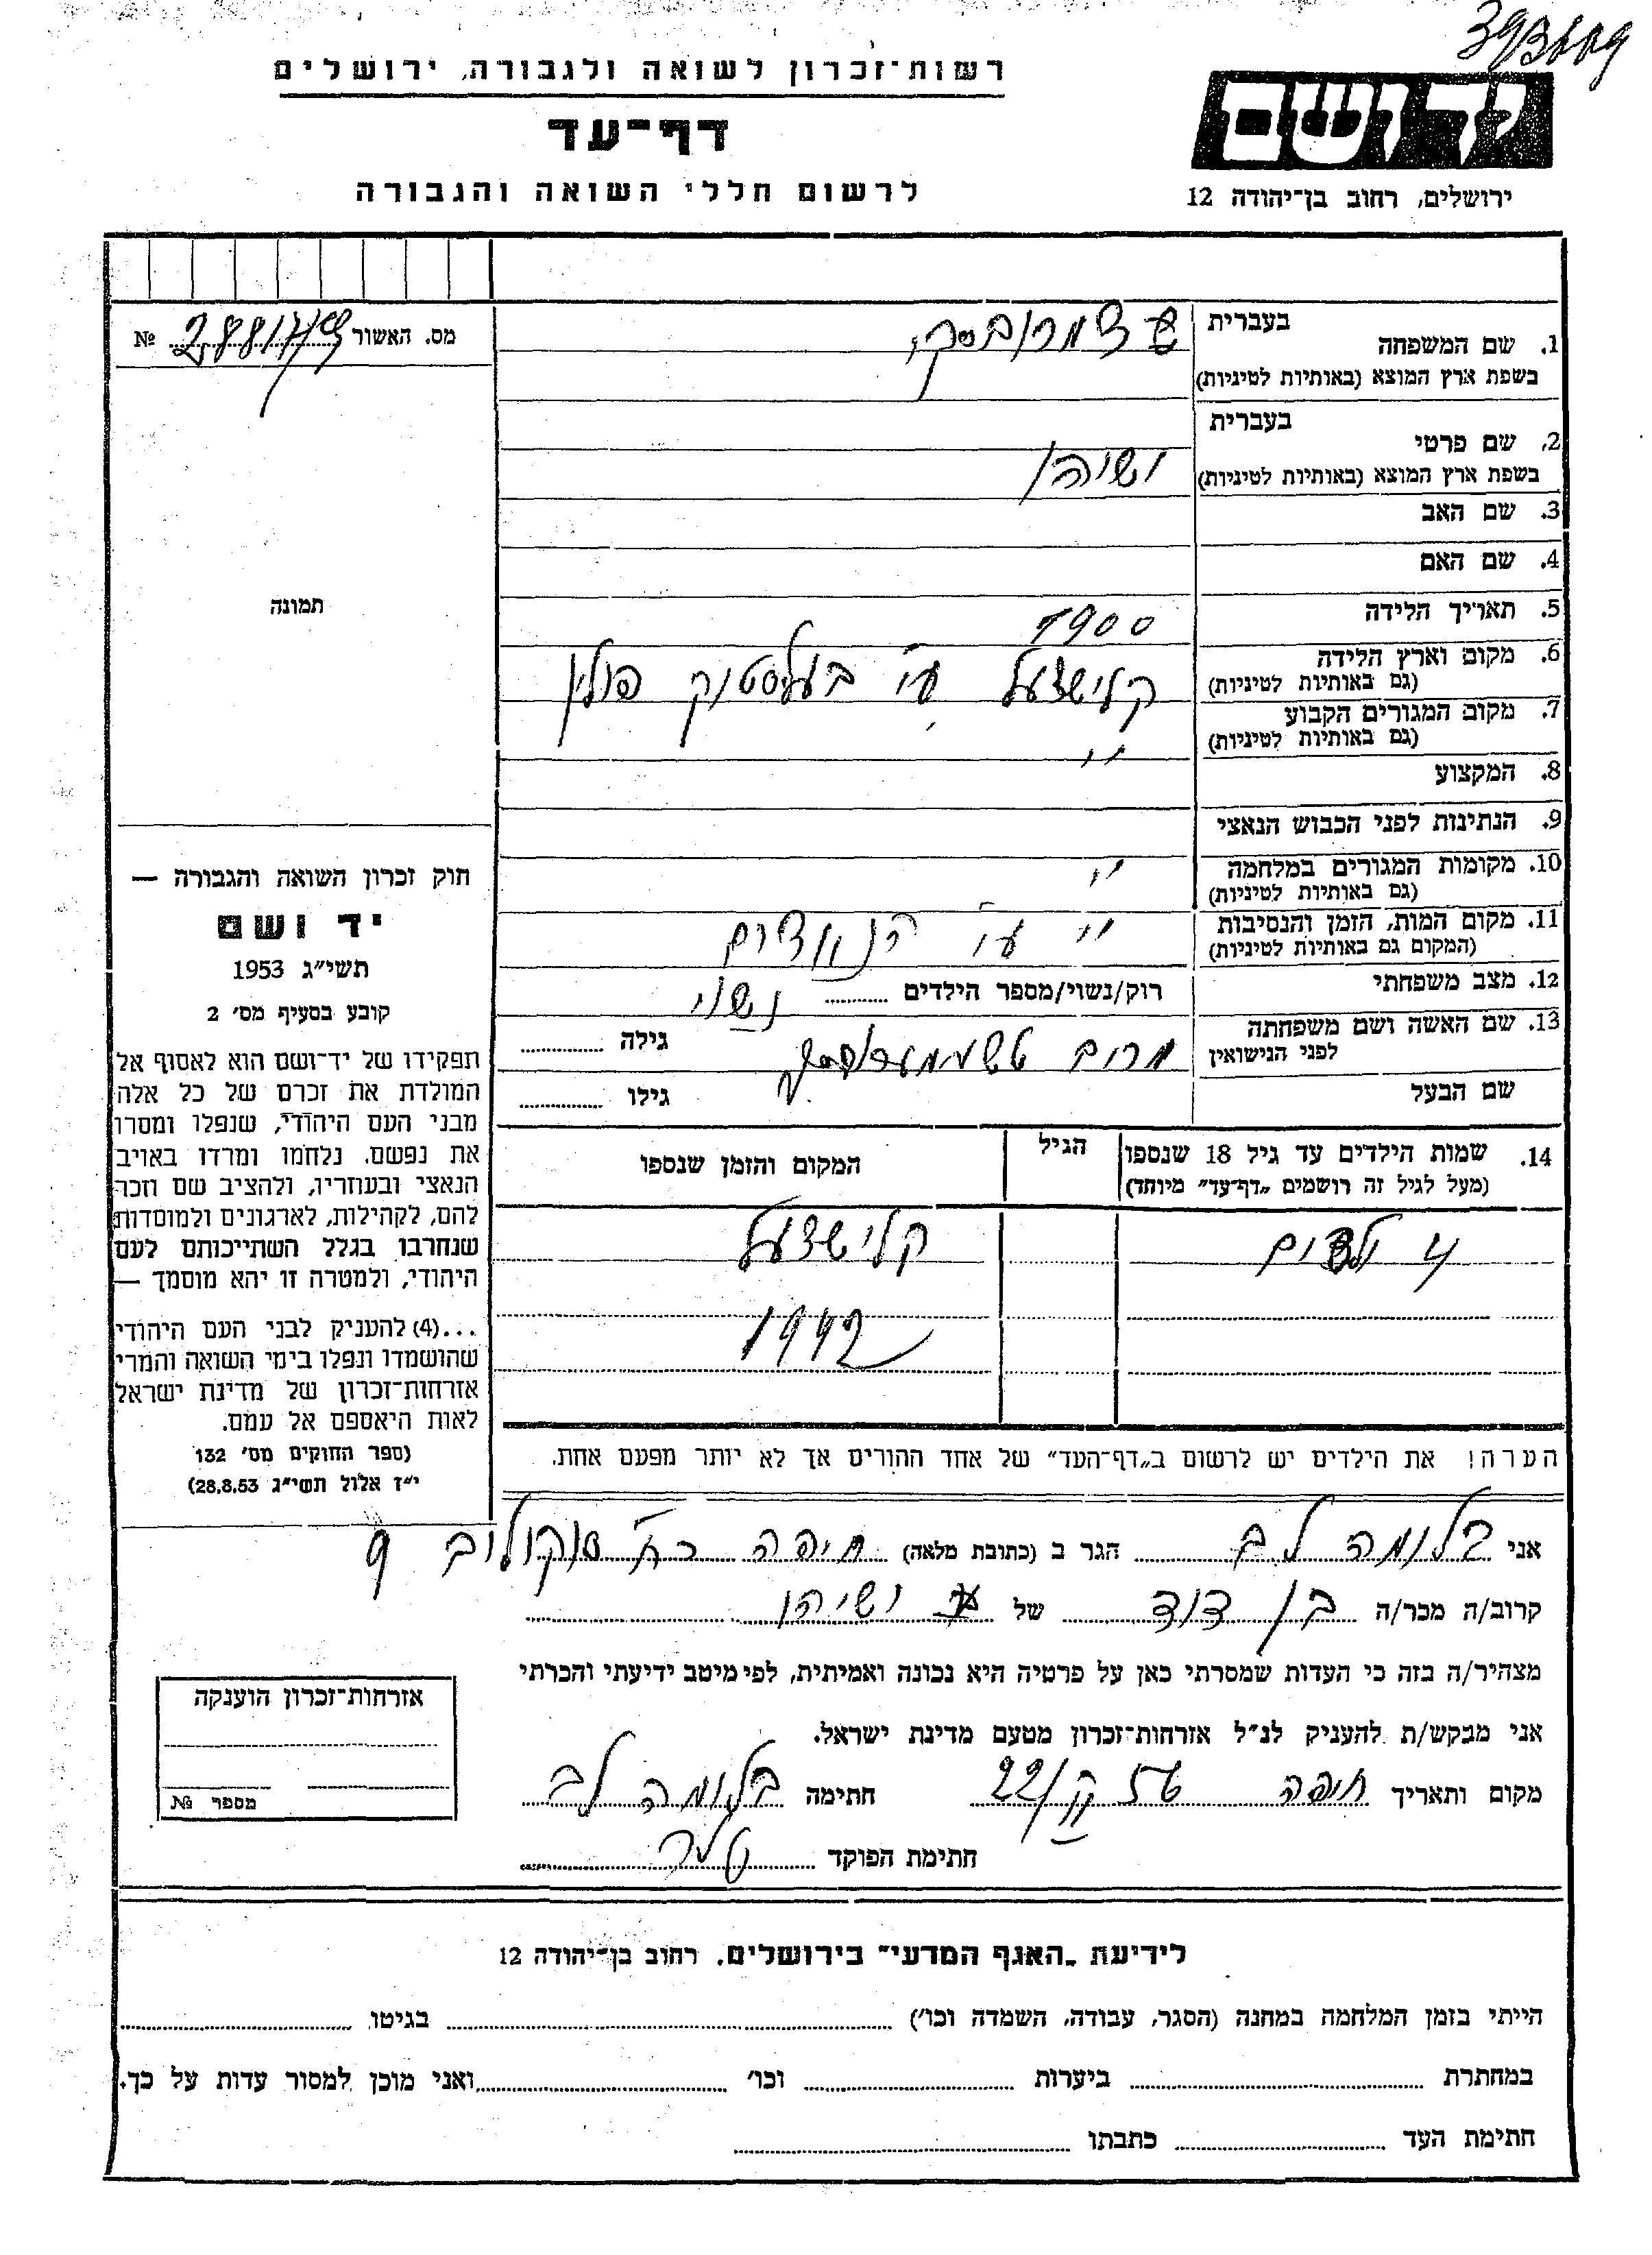 רשות־זכרון לשואה ולגבורה, ירושלים
דף־עד
לרשום חללי השואה והגבורה
יד ושם
ירושלים, רחוב בן־יהודה 12
מס. האשור №
1. שם המשפחה
בעברית
בשפת ארץ המוצא (באותיות לטיניות)
2. שם פרטי
בעברית
בשפת ארץ המוצא (באותיות לטיניות)
3. שם האב
4. שם האם
5. תאריך הלידה 1900
6. מקום וארץ הלידה
(גם באותיות לטיניות) קלישצעל ע״י בעליסטוק פולין
7. מקום המגורים הקבוע
(גם באותיות לטיניות) ״
8. המקצוע
9. הנתינות לפני הכבוש הנאצי
10. מקומות המגורים במלחמה
(גם באותיות לטיניות) ״
11. מקום המות, הזמן והנסיבות
(המקום גם באותיות לטיניות) ״ ע״י
12. מצב משפחתי רוק/נשוי/מספר הילדים נשוי
13. שם האשה ושם משפחתה
לפני הנישואין
גילה
שם הבעל גילו
14. שמות הילדים עד גיל 18 שנספו
(מעל לגיל זה רושמים „דף־עד״ מיוחד)
הגיל
המקום והזמן שנספו
4 ילדים קלישצעל
1942
הערה! את הילדים יש לרשום ב„דף־העד״ של אחד ההורים אך לא יותר מפעם אחת.
תמונה
חוק זכרון השואה והגבורה —
יד ושם
תשי״ג 1953
קובע בסעיף מס׳ 2
תפקידו של יד־ושם הוא לאסוף אל
המולדת את זכרם של כל אלה
מבני העם היהודי, שנפלו ומסרו
את נפשם, נלחמו ומרדו באויב
הנאצי ובעוזריו, ולהציב שם וזכר
להם, לקהילות, לארגונים ולמוסדות
שנחרבו בגלל השתייכותם לעם
היהודי, ולמטרה זו יהא מוסמך —
...(4) להעניק לבני העם היהודי
שהושמדו ונפלו בימי השואה והמרי
אזרחות־זכרון של מדינת ישראל
לאות היאספם אל עמם.
(ספר החוקים מס׳ 132
י״ז אלול תשי״ג 28.8.53)
אני בלומה לב הגר ב (כתובת מלאה) חיפה רח׳ סוקולוב 9
קרוב/ה מכר/ה בן דוד של
מצהיר/ה בזה כי העדות שמסרתי כאן על פרטיה היא נכונה ואמיתית, לפי מיטב ידיעתי והכרתי
אני מבקש/ת להעניק לנ״ל אזרחות־זכרון מטעם מדינת ישראל.
מקום ותאריך חיפה חתימה בלומה לב
חתימת הפוקד
אזרחות־זכרון הוענקה
מספר №
לידיעת „האגף המדעי״ בירושלים, רחוב בן־יהודה 12
הייתי בזמן המלחמה במחנה (הסגר, עבודה, השמדה וכו׳) בגיטו
במחתרת ביערות וכו׳ ואני מוכן למסור עדות על כך.
חתימת העד כתבתו